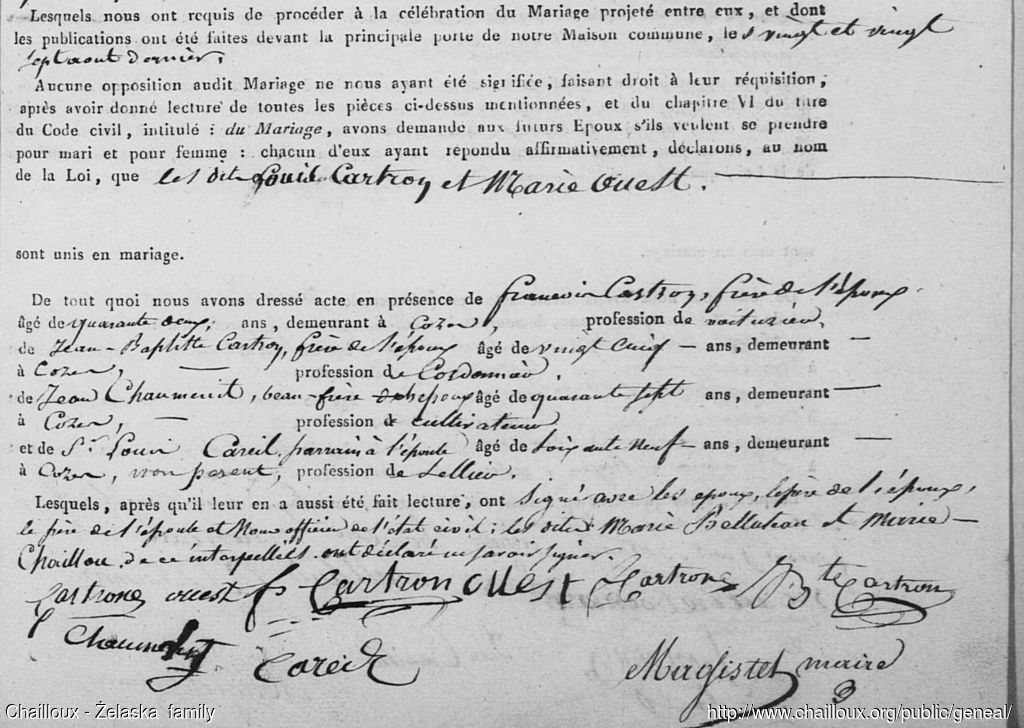 Lesquels nous ont requis de procéder à la célébration du Mariage projeté entre eux, et dont
les publications ont été faites devant la principale porte de notre Maison commune, les vingt et vingt
sept aout dernier,
Aucune opposition audit Mariage ne nous ayant été signifiée, faisant droit à leur réquisition,
après avoir donné lecture de toutes les pièces ci-dessus mentionnées, et du chapitre VI du titre
du Code civil, intitulé : du Mariage, avons demandé aux futurs Epoux s'ils veulent se prendre
pour mari et pour femme : chacun d'eux ayant répondu affirmativement, déclarons, au nom
de la Loi, que les dits Louis Cartron et Marie Ouest.
sont unis en mariage.
De tout quoi nous avons dressé acte en présence de francois Cartron, frère de l'époux
âgé de quarante deux, ans, demeurant à Cozes, profession de voiturier,
de Jean-Baptiste Cartron, frère de l'époux âgé de vingt cinq – ans, demeurant —
à Cozes, — profession de Cordonnier,
de Jean Chaumerit, beau-frère de l'époux âgé de quarante sept ans, demeurant —
à Cozes, — profession de cultivateur
et de Sr. Louis Careil, parrain à l'épouse âgé de soixante neuf – ans, demeurant —
à Cozes, non parent, profession de Sellier.
Lesquels, après qu'il leur en a aussi été fait lecture, ont signé avec les epoux, le père de l'époux,
le père de l'épouse et Nous officier de l'état civil; les dites Marie Belluteau et Marie –
Chaillou de ce interpellés ont déclaré ne savoir signer.
Cartron ouest fs Cartron Ouest Cartron JBte Cartron
Chaumerit
Careil Magistel maire
Chailloux - Želaska family http://www.chailloux.org/public/geneal/